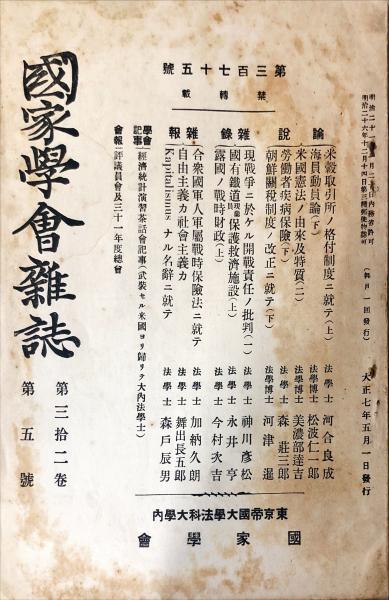 號五十七百三第
載轉禁
明治二十一年
月二
日內務省許可
明治二十六年十二月十四日第三種郵便物認可
(每月一回發行)
大正七年五月一日發行
論說
米穀取引所ノ格付制度ニ就テ(上) 法學士 河合良成
海員動員論(下) 法學博士 松波仁一郎
米國憲法ノ由來及特質(二) 法學博士 美濃部達吉
勞働者疾病保險(下) 法學士 森莊三郎
朝鮮關稅制度ノ改正ニ就テ(下) 法學博士 河津暹
雜錄
現戰爭ニ於ケル開戰責任ノ批判(二) 法學士 神川彥松
國有鐵道
保護救濟施設(上) 法學士 永井亨
露國ノ戰時財政(上) 法學士 今村次吉
雜報
合衆國軍人軍屬戰時保險法ニ就テ 法學士 加納久朗
自由主義カ社會主義カ 法學士 舞出長五郎
Kapitalismus ナル名辭ニ就テ 法學士 森戶辰男
學會記事
經濟統計演習茶話會記事(武裝セル米國ヨリ歸リテ大內法學士)
會報
評議員會及三十一年度總會
國家學會雜誌
第三拾二卷
第五號
內學大科學法學大國帝京東
會學家國